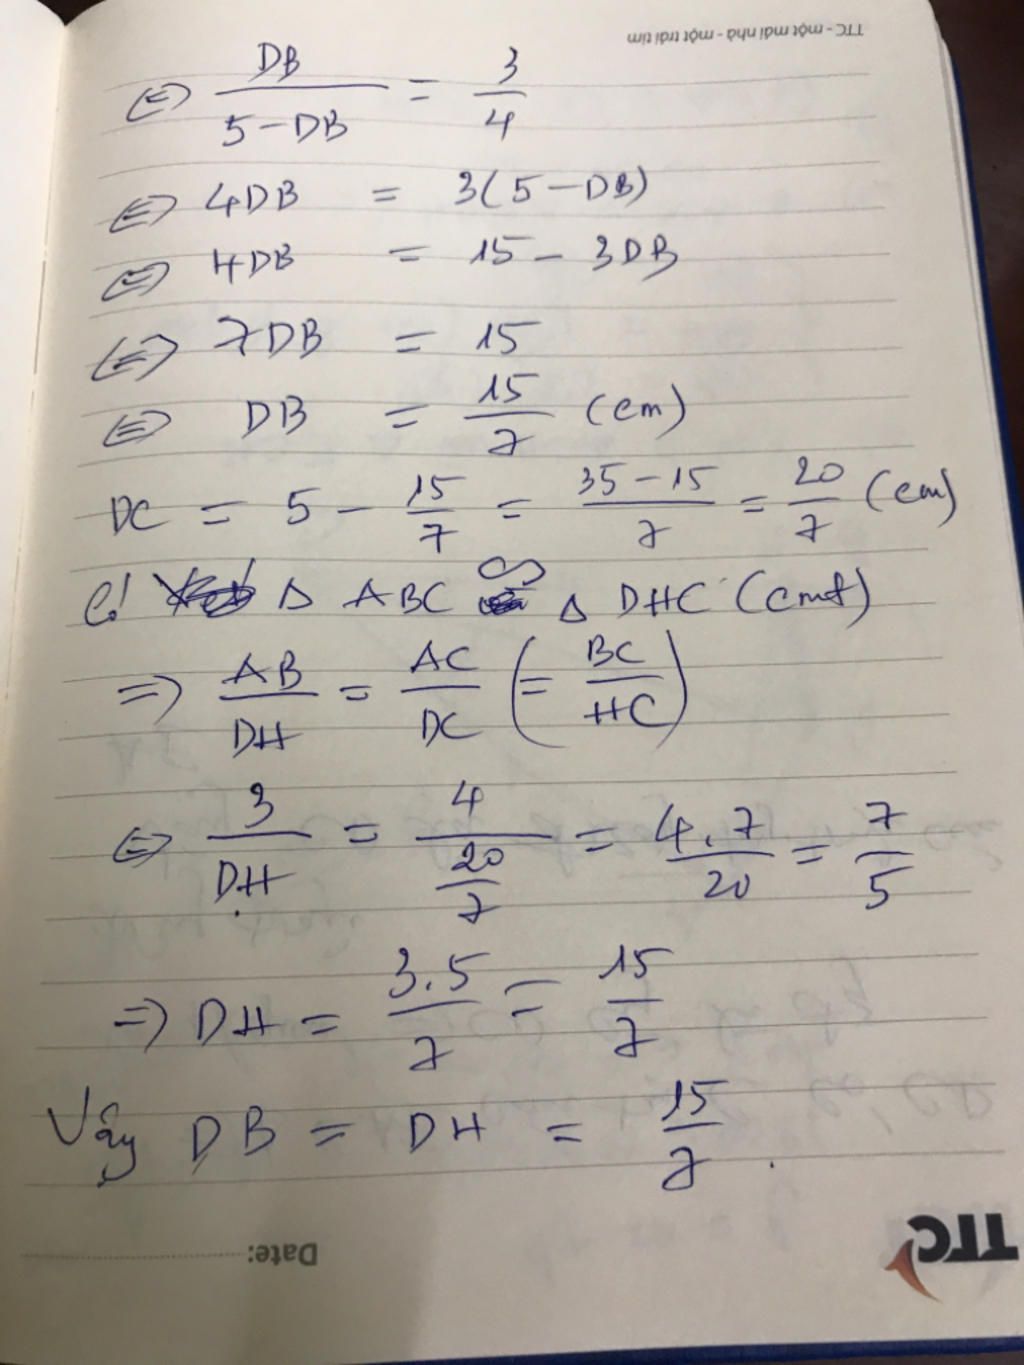 TTC - một mái nhà - một trái tim
⇔ DB / (5 - DB) = 3/4
⇔ 4DB = 3(5 - DB)
⇔ 4DB = 15 - 3DB
⇔ 7DB = 15
⇔ DB = 15/7 (cm)
DC = 5 - 15/7 = (35 - 15)/7 = 20/7 (cm)
c) Δ ABC ∽ Δ DHC (cmt)
=> AB/DH = AC/DC (= BC/HC)
⇔ 3/DH = 4/(20/7) = 4.7/20 = 7/5
=> DH = 3.5/7 = 15/7
Vậy DB = DH = 15/7.
Date:
TTC